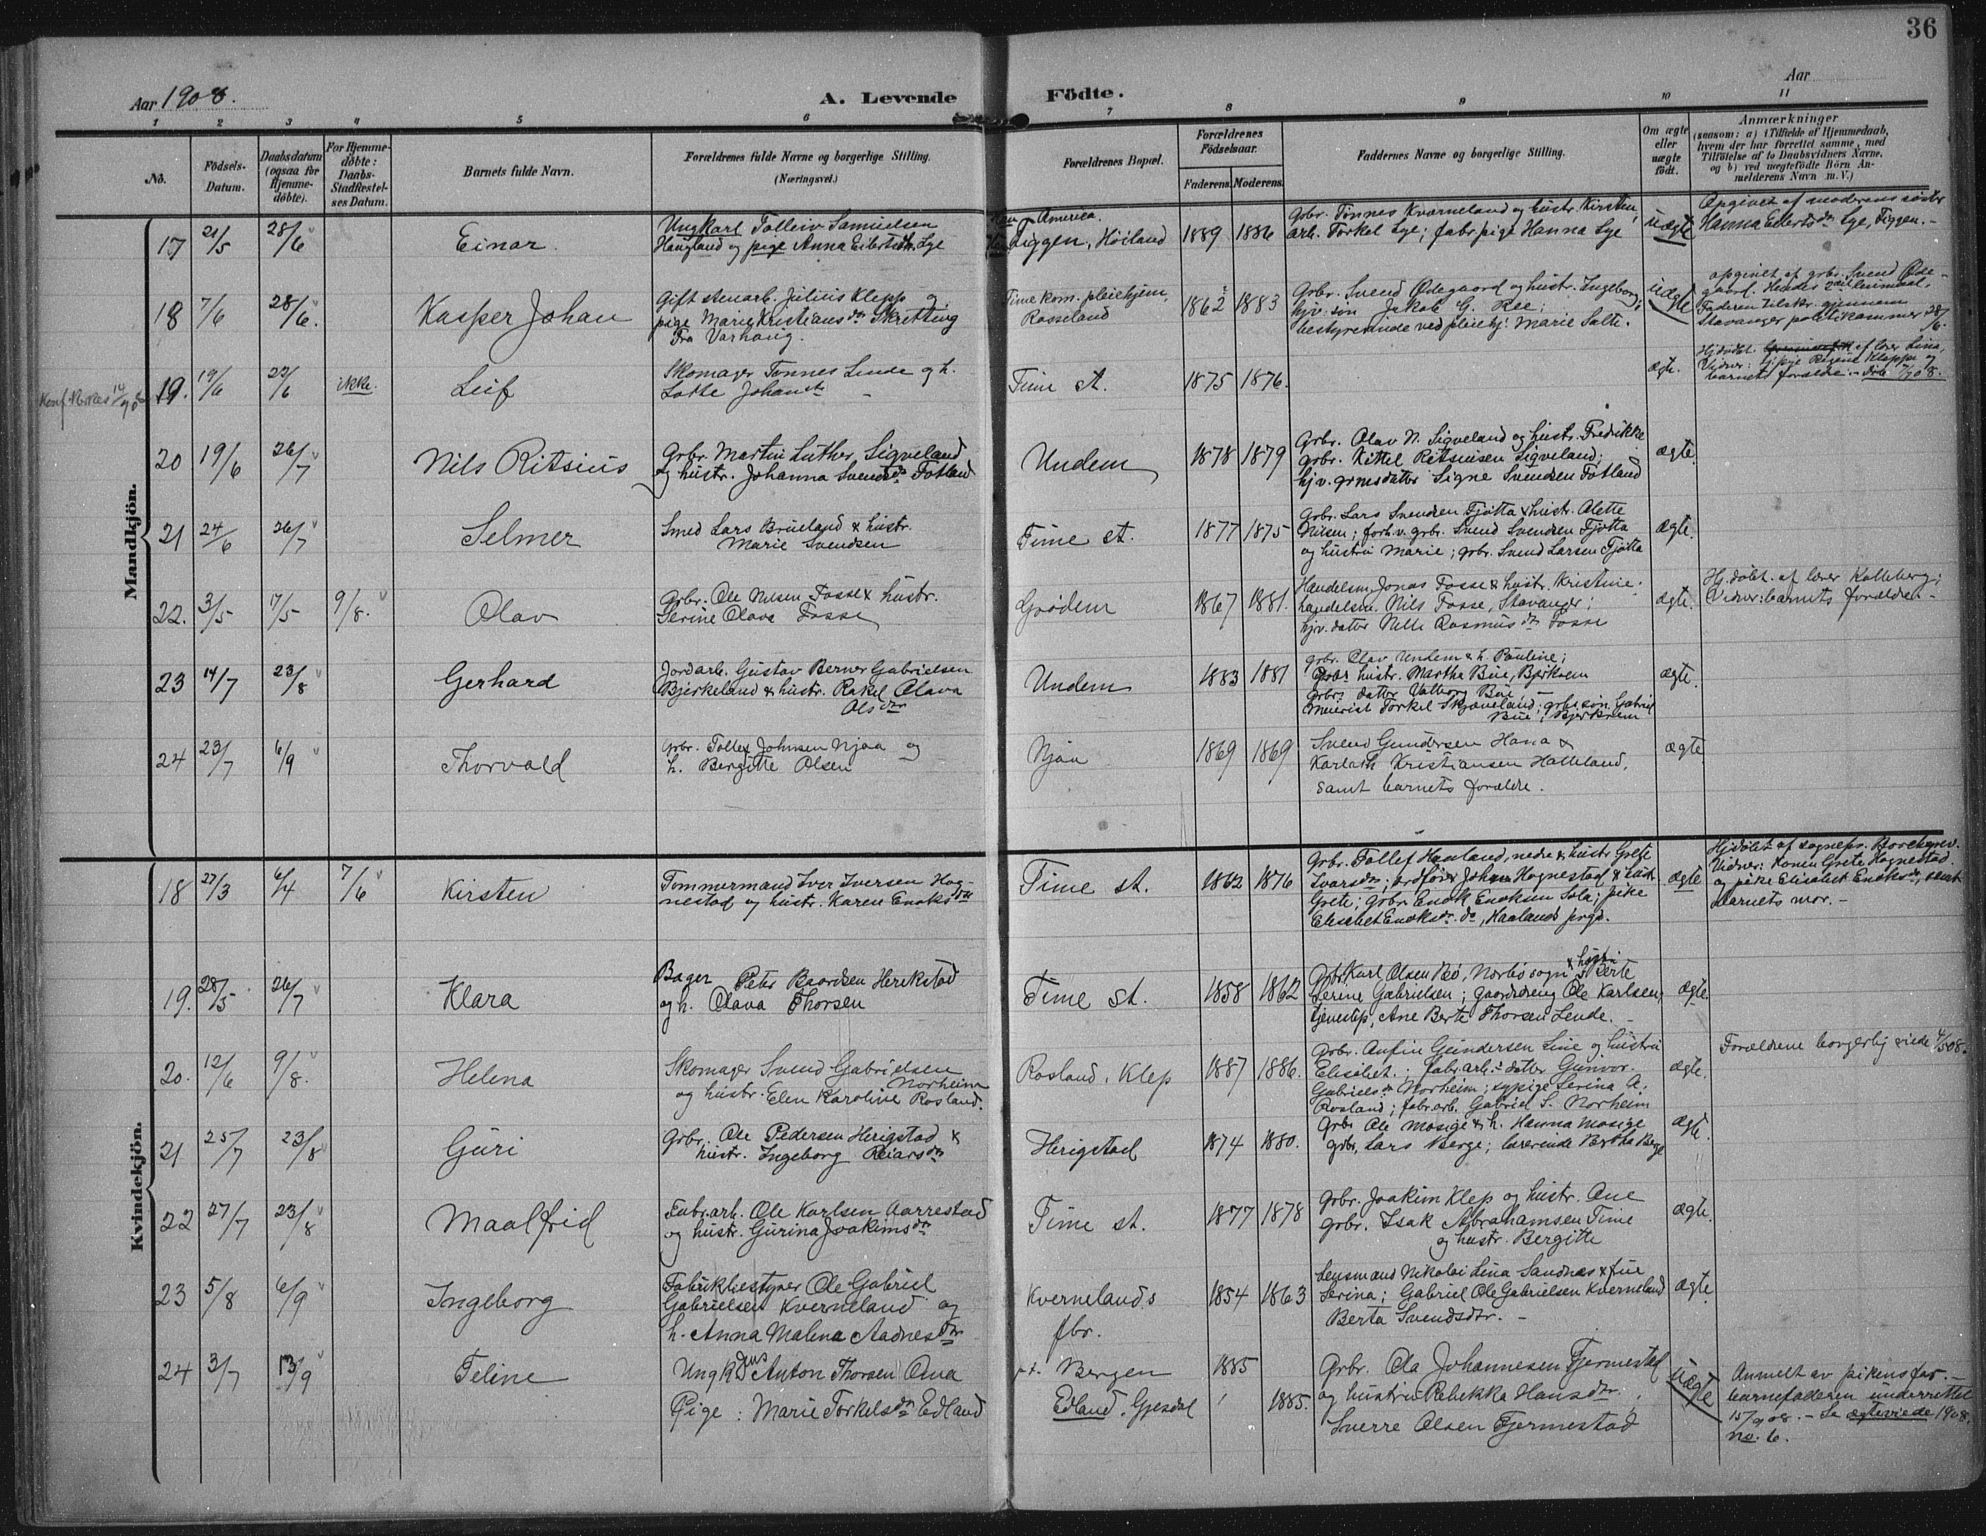 36
Aar 1908.
A. Levende Födte.
Aar
1 2 3 4 5 6 7 8 9 10 11
No.
Födsels-Datum.
Daabsdatum (ogsaa for Hjemme-døbte).
For Hjemme-døbte: Daabs-Stadfæstel-ses Datum.
Barnets fulde Navn.
Forældrenes fulde Navne og borgerlige Stilling.
(Næringsvei.)
Forældrenes Bopæl.
Forældrenes Födselsaar.
Faderens. Moderens.
Faddernes Navne og borgerlige Stilling.
Om ægte eller uægte født.
Anmærkninger
(saasom: a) i Tilfælde af Hjemmedaab, hvem der har forrettet samme, med Tilføielse af to Daabsvidners Navne, og b) ved uægtefødte Børn An-melderens Navn m. V.)
Mandkjön.
17 21/5 28/6 Einar
Ungkarl Tolleiv Samuelsen
Haugland og pige Anna Eilertsdtr Lye
Han Amerika.
Tiggen, Höiland
1889 1886
Grbr. Tönnes Kværneland og hustr. Kirsten,
arb. Torkel Lye; fabr.pige Hanna Lye
uægte
Opgivet af moderens søster
Hanna Eilertsdr Lye, Tiggen. -
18 7/6 28/6. Kasper Johan
Gift stenarb. Julius Klepp og
pige Marie Kristiansdtr Skretting
Fra Varhaug.
Time kom. pleiehjem,
Rosseland
1862 1883
Grbr. Svend Ødegaard og hustr. Ingeborg;
hjv. søn Jakob G. Ree;
bestyrerinde ved pleiehj. Marie Salte.
uægte
opgivet af grbr. Svend Øde-
gaard. Hendes
Faderen tilskr. gjennem
Stavanger politikammer 28/6.
Konf. Kirkes 19. 19/6 22/6 ikke. Leif
Skomager Tönnes Lende og h.
Lotte Johansdtr
Time st.
1875 1876.
ægte.
Hj.døbt af lærer Lima,
Vidner: Regine Kleppe og
barnets forældre. - Död 1908.
20 19/6 26/7 Nils Ritsius
Grbr. Martin Luther Sigveland
og hustr. Johanna Svendsdr Fotland
Undem
1878 1879
Grbr. Olav N. Sigveland og hustr. Fredrikke
grbr. Kittel Ritsiusen Sigveland;
hjv. grmsdatter Signe Svendsen Fotland
ægte.
21 24/6 26/7 Selmer
Smed Lars Brueland & hustr.
Marie Svendsen
Time st.
1877 1875
Grbr. Lars Svendsen Tjøtta & hustr. Alette
Nilsen; forhv. grbr. Svend Svendsen Tjøtta
og hustru Marie; grbr. Svend Larsen Tjøtta
ægte.
22. 3/5 17/5 9/8. Olav
Grbr. Ole Nilsen Fosse & hustr.
Serine Olava Fosse
Grödem
1867 1881.
Handelsm. Jonas Fosse & hustr. Kristine.
handelsm. Nils Fosse, Stavanger;
hjv. datter Nille Rasmusdr Fosse
ægte.
Hj.döbt. af lærer Kalleberg;
Vidner: barnets forældre -
23 14/7 23/8 Gerhard
Jordarb. Gustav Berner Gabrielsen
Bjerkeland & hustr. Rakel Olava
Olsdtr
Undem
1883 1881
grbr. Olav Undem & h. Pauline;
hustr. Martha Bue, Bjerkreim
grbrs datter Valborg Bue,
meierist Torkel Skjæveland; grbr. søn Gabriel
Bue, Bjerkreim
ægte.
24 23/7 6/9 Thorvald
Grbr. Tollef Johnsen Njaa og
h. Bergitte Olsen
Njaa
1869 1869
Svend Gundersen Hana &
Kristiansen Halleland,
samt barnets forældre.
ægte
Kvindekjön.
18 27/3 6/4 7/6 Kirsten
Tømmermand Iver Iversen Hog-
nestad og hustr. Karen Enoksdtr
Time st.
1862 1876
Grbr. Tollef Haaland, nedre & hustr Grete
Ivarsdtr; ordfører Johan Hognestad & hustr
Grete; Grbr Enok Enoksen Sola; pike
Elisabet Enoksdr. do, Haalands prgd.
ægte
Hj.döbt af sognepr. Borchgrev.
Vidner: Konen Grete Hognestad
og pike Elisabet Enoksdr, samt
barnets mor. -
19. 28/5 26/7 Klara
Bager Peter Baardsen Herikstad
og h. Olava Thorsen
Time st.
1858 1862
Grbr Karl Olsen Bø, Norbø sogn & hustr. Berte
Serene Gabrielsen; gaarddreng Ole Karlsen,
tjenestep. Ane Berte Thorsen Lende. -
ægte.
20. 12/6 9/8. Helena
Skomager Svend Gabrielsen
Norheim
og hustr. Elen Karoline Rosland.
Rosland, Klep
1887 1886.
Grbr. Anfin Gundersen Line og hustru
Elisabet; fabr.arb.s datter Gunvor
Gabrielsdtr Norheim; sypige Serina A.
Rosland; fabr.arb. Gabriel S. Norheim
ægte.
Forældrene borgerlig viede 4/5 08.
21 25/7 23/8 Guri
Grbr. Ole Pedersen Herigstad &
hustr. Ingeborg Reiarsdtr
Herigstad
1874 1880.
Grbr Ole Mosige & h. Hanna Mosige
grbr. Lars Berge; lærerinde Bertha Berge
ægte.
22 27/7 23/8 Maalfrid
Fabr.arb. Ole Karlsen Aarrestad
og hustr. Gurina Joakimsdtr
Time st.
1877 1878
Grbr. Joakim Klep og hustr. Ane
grbr. Isak Abrahamsen Time
og hustr. Bergitte
ægte.
23 5/8 6/9 Ingeborg
Fabrikbestyrer Ole Gabriel
Gabrielsen Kverneland og
h. Anna Malena Aadnesdtr
Kvernelands
fbr.
1854 1863
Lensmand Nikolai Lura Sandnæs & frue
Serina; Gabriel Ole Gabrielsen Kverneland
Berta Svendsdtr. -
ægte.
24 3/7 13/9 Teline
Ungk. Anton Thorsen Ona
Pige: Marie Torkelsdtr Edland
Bergen
Edland, Gjesdal
1885
1885.
Grbr. Ola Johannesen Fjermestad
og hustru Rebekka Hansdtr,
Sverre Olsen Fjermestad
uægte
Anmelt av pikens far. -
barnefaderen underrettet
15/9 08. - Se ægteviede 1908.
no. 6.